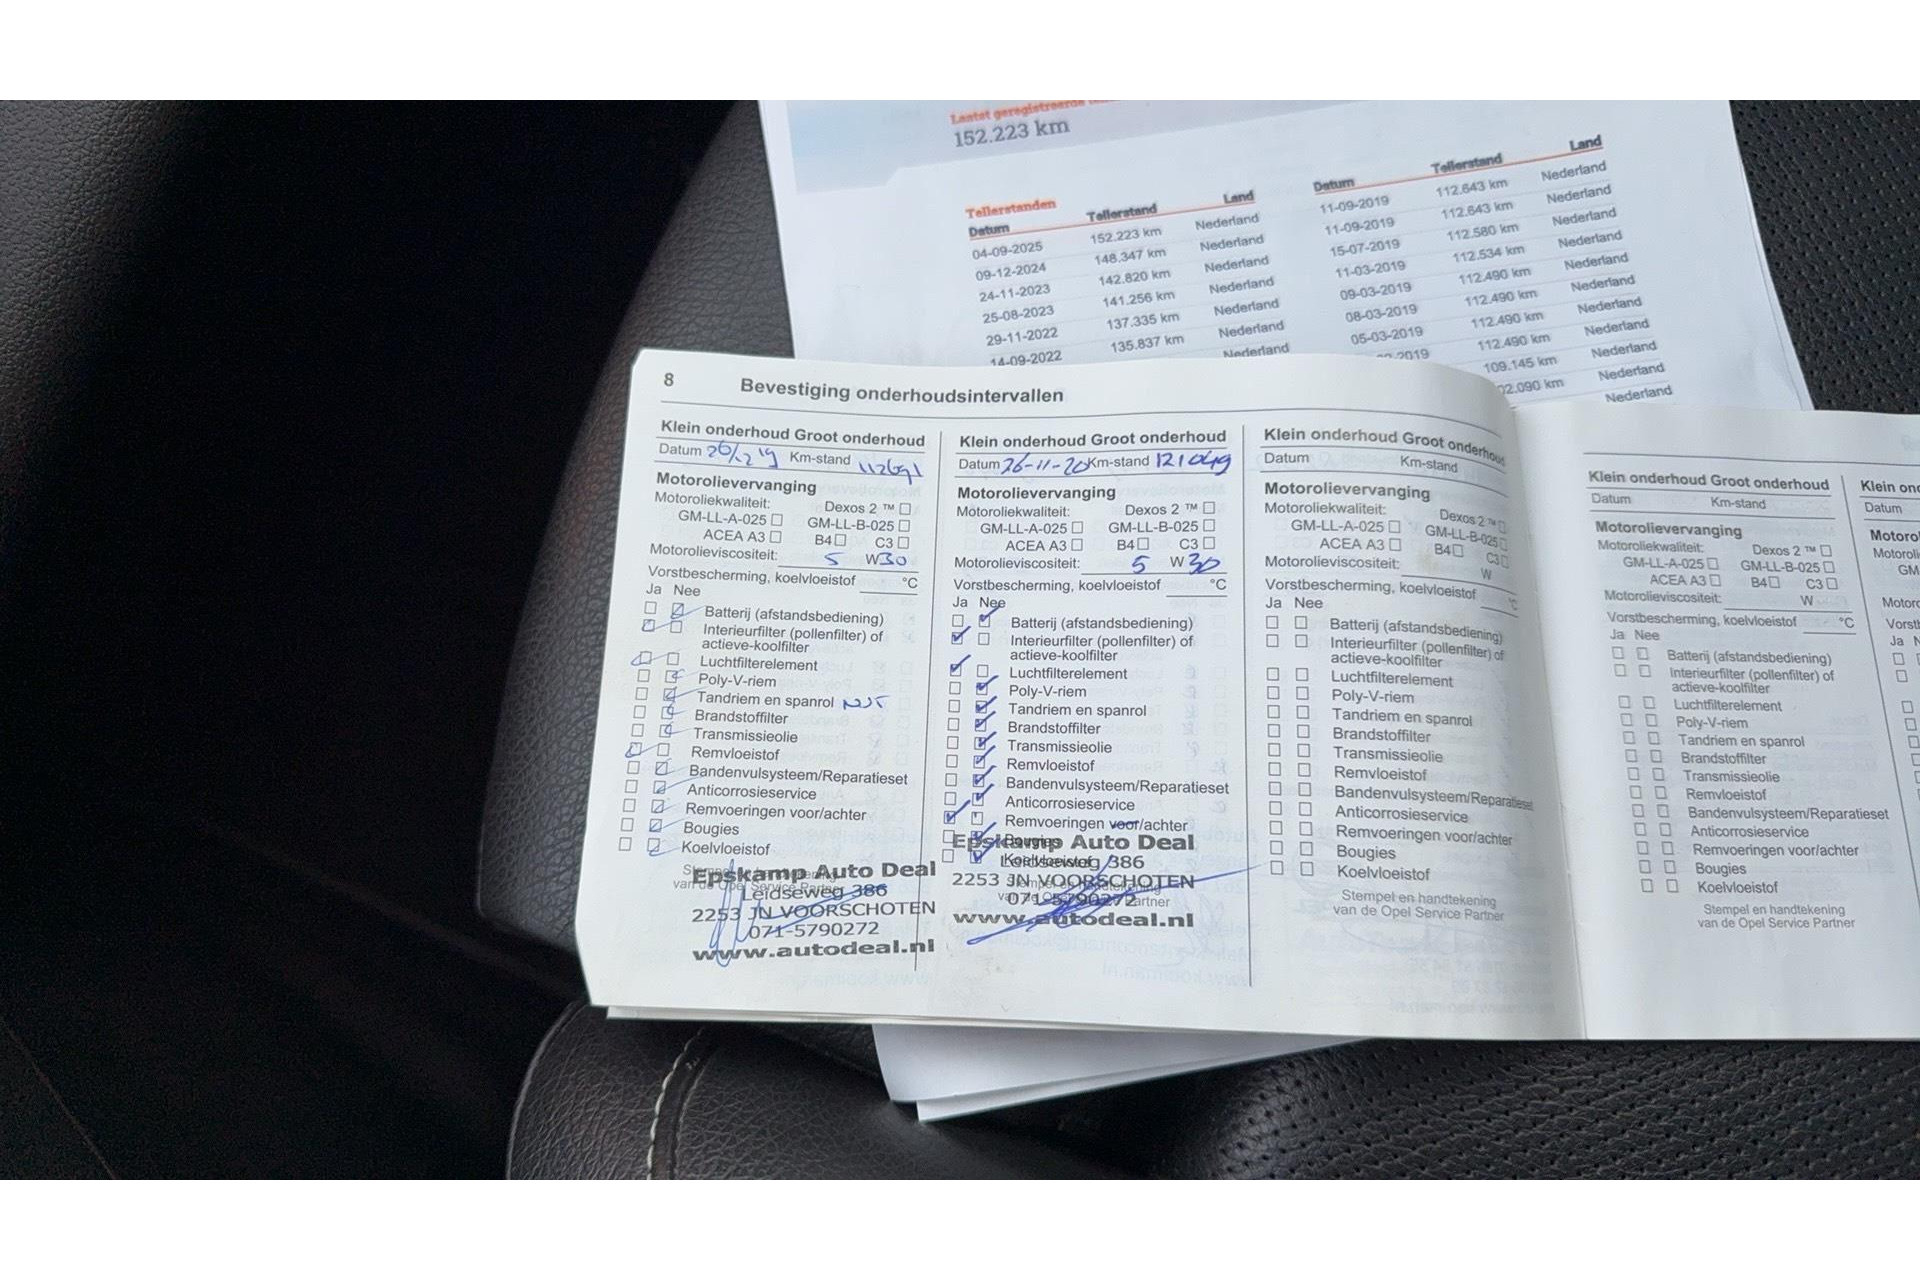 Laatst geregistreerde
152.223 km
Tellerstanden
Datum Tellerstand Land
04-09-2025 152.223 km Nederland
09-12-2024 148.347 km Nederland
24-11-2023 142.820 km Nederland
25-08-2023 141.256 km Nederland
29-11-2022 137.335 km Nederland
14-09-2022 135.837 km Nederland
Nederland
Datum Tellerstand Land
11-09-2019 112.643 km Nederland
11-09-2019 112.643 km Nederland
15-07-2019 112.580 km Nederland
11-03-2019 112.534 km Nederland
09-03-2019 112.490 km Nederland
08-03-2019 112.490 km Nederland
05-03-2019 112.490 km Nederland
2019 112.490 km Nederland
109.145 km Nederland
02.090 km Nederland
Nederland
8 Bevestiging onderhoudsintervallen
Klein onderhoud Groot onderhoud
Datum 20/12 19 Km-stand 112691
Motorolievervanging
Motoroliekwaliteit: Dexos 2 ™
GM-LL-A-025 GM-LL-B-025
ACEA A3 B4 C3
Motorolieviscositeit: 5 W 30
Vorstbescherming, koelvloeistof °C
Ja Nee
Batterij (afstandsbediening)
Interieurfilter (pollenfilter) of
actieve-koolfilter
Luchtfilterelement
Poly-V-riem
Tandriem en spanrol
Brandstoffilter
Transmissieolie
Remvloeistof
Bandenvulsysteem/Reparatieset
Anticorrosieservice
Remvoeringen voor/achter
Bougies
Koelvloeistof
Epskamp Auto Deal
Leidseweg 386
2253 JN VOORSCHOTEN
071-5790272
www.autodeal.nl
Klein onderhoud Groot onderhoud
Datum 26-11-20 Km-stand 121049
Motorolievervanging
Motoroliekwaliteit: Dexos 2 ™
GM-LL-A-025 GM-LL-B-025
ACEA A3 B4 C3
Motorolieviscositeit: 5 W 30
Vorstbescherming, koelvloeistof °C
Ja Nee
Batterij (afstandsbediening)
Interieurfilter (pollenfilter) of
actieve-koolfilter
Luchtfilterelement
Poly-V-riem
Tandriem en spanrol
Brandstoffilter
Transmissieolie
Remvloeistof
Bandenvulsysteem/Reparatieset
Anticorrosieservice
Remvoeringen voor/achter
Bougies
Koelvloeistof
Epskamp Auto Deal
Leidseweg 386
2253 JN VOORSCHOTEN
071-5790272
www.autodeal.nl
Klein onderhoud Groot onderhoud
Datum Km-stand
Motorolievervanging
Motoroliekwaliteit: Dexos 2 ™
GM-LL-A-025 GM-LL-B-025
ACEA A3 B4 C3
Motorolieviscositeit: W
Vorstbescherming, koelvloeistof °C
Ja Nee
Batterij (afstandsbediening)
Interieurfilter (pollenfilter) of
actieve-koolfilter
Luchtfilterelement
Poly-V-riem
Tandriem en spanrol
Brandstoffilter
Transmissieolie
Remvloeistof
Bandenvulsysteem/Reparatieset
Anticorrosieservice
Remvoeringen voor/achter
Bougies
Koelvloeistof
Stempel en handtekening
van de Opel Service Partner
Klein onderhoud Groot onderhoud
Datum Km-stand
Motorolievervanging
Motoroliekwaliteit: Dexos 2 ™
GM-LL-A-025 GM-LL-B-025
ACEA A3 B4 C3
Motorolieviscositeit: W
Vorstbescherming, koelvloeistof °C
Ja Nee
Batterij (afstandsbediening)
Interieurfilter (pollenfilter) of
actieve-koolfilter
Luchtfilterelement
Poly-V-riem
Tandriem en spanrol
Brandstoffilter
Transmissieolie
Remvloeistof
Bandenvulsysteem/Reparatieset
Anticorrosieservice
Remvoeringen voor/achter
Bougies
Koelvloeistof
Stempel en handtekening
van de Opel Service Partner
Klein
Datum
GM
Ja